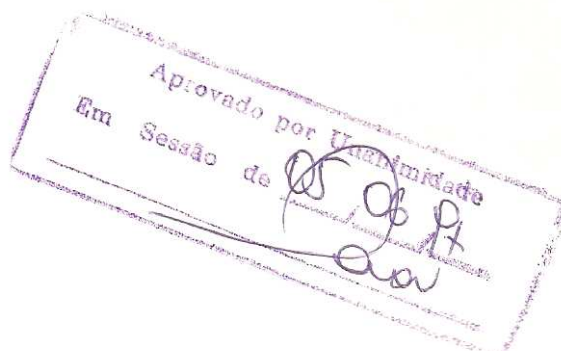 Aprovado por Unanimidade
Em Sessão de 05 / 06 /